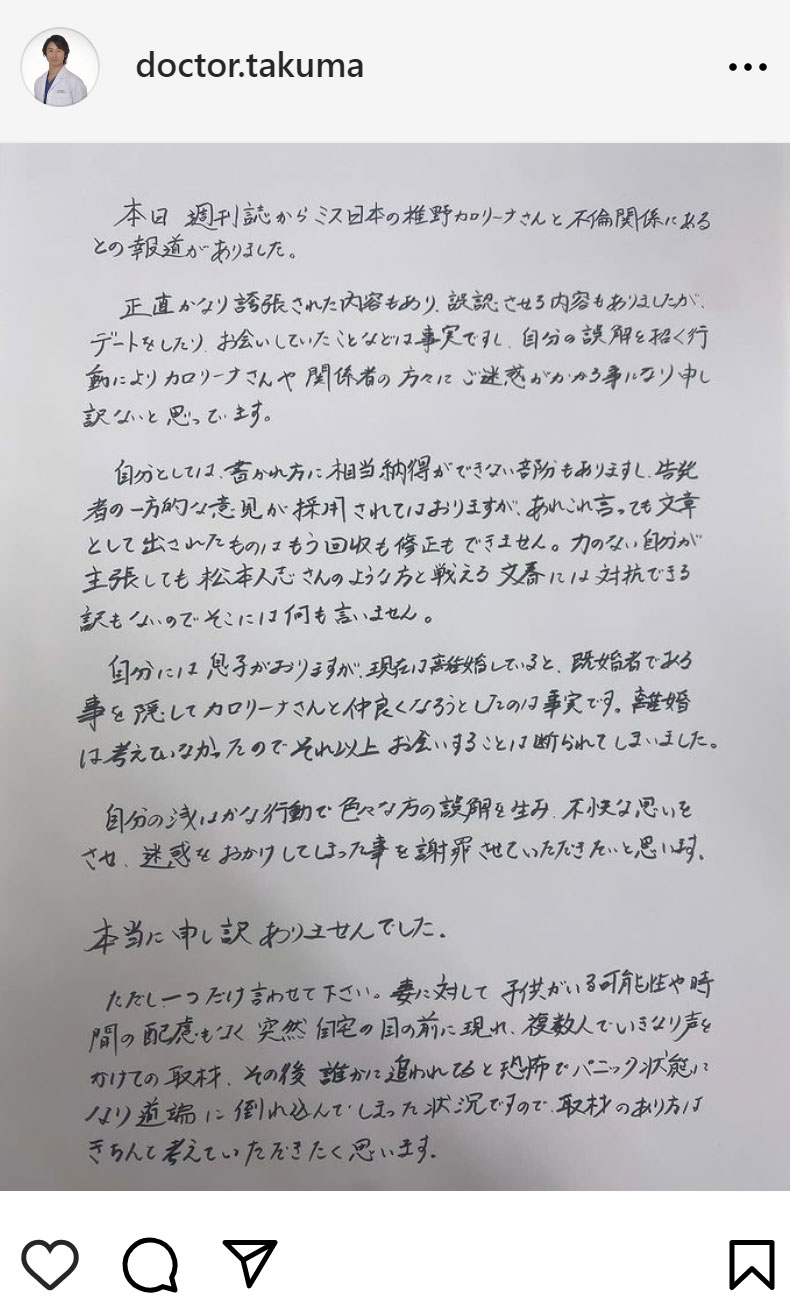 doctor.takuma
本日 週刊誌からミス日本の椎野カロリーナさんと不倫関係にある
との報道がありました。
正直かなり誇張された内容もあり、誤認させる内容もありましたが、
デートをしたり、お会いしていたことなどは事実ですし、自分の誤解を招く行
動によりカロリーナさんや関係者の方々にご迷惑がかかる事になり申し
訳ないと思っています。
自分としては、書かれ方に相当納得ができない部分もありますし、告発
者の一方的な意見が採用されてはおりますが、あれこれ言っても文章
として出されたものはもう回収も修正もできません。力のない自分が
主張しても松本人志さんのような方と戦える文春には対抗できる
訳もないのでそこには何も言いません。
自分には息子がおりますが、現在は離婚していると、既婚者である
事を隠してカロリーナさんと仲良くなろうとしたのは事実です。離婚
は考えていなかったのでそれ以上お会いすることは断られてしまいました。
自分の浅はかな行動で色々な方の誤解を生み、不快な思いを
させ、迷惑をおかけしてしまった事を謝罪させていただきたいと思います。
本当に申し訳ありませんでした。
ただし一つだけ言わせて下さい。妻に対して子供がいる可能性や時
間の配慮もなく突然自宅の目の前に現れ、複数人でいきなり声を
かけての取材、その後誰かに追われてると恐怖でパニック状態に
なり道端に倒れ込んでしまった状況ですので、取材のあり方は
きちんと考えていただきたく思います。